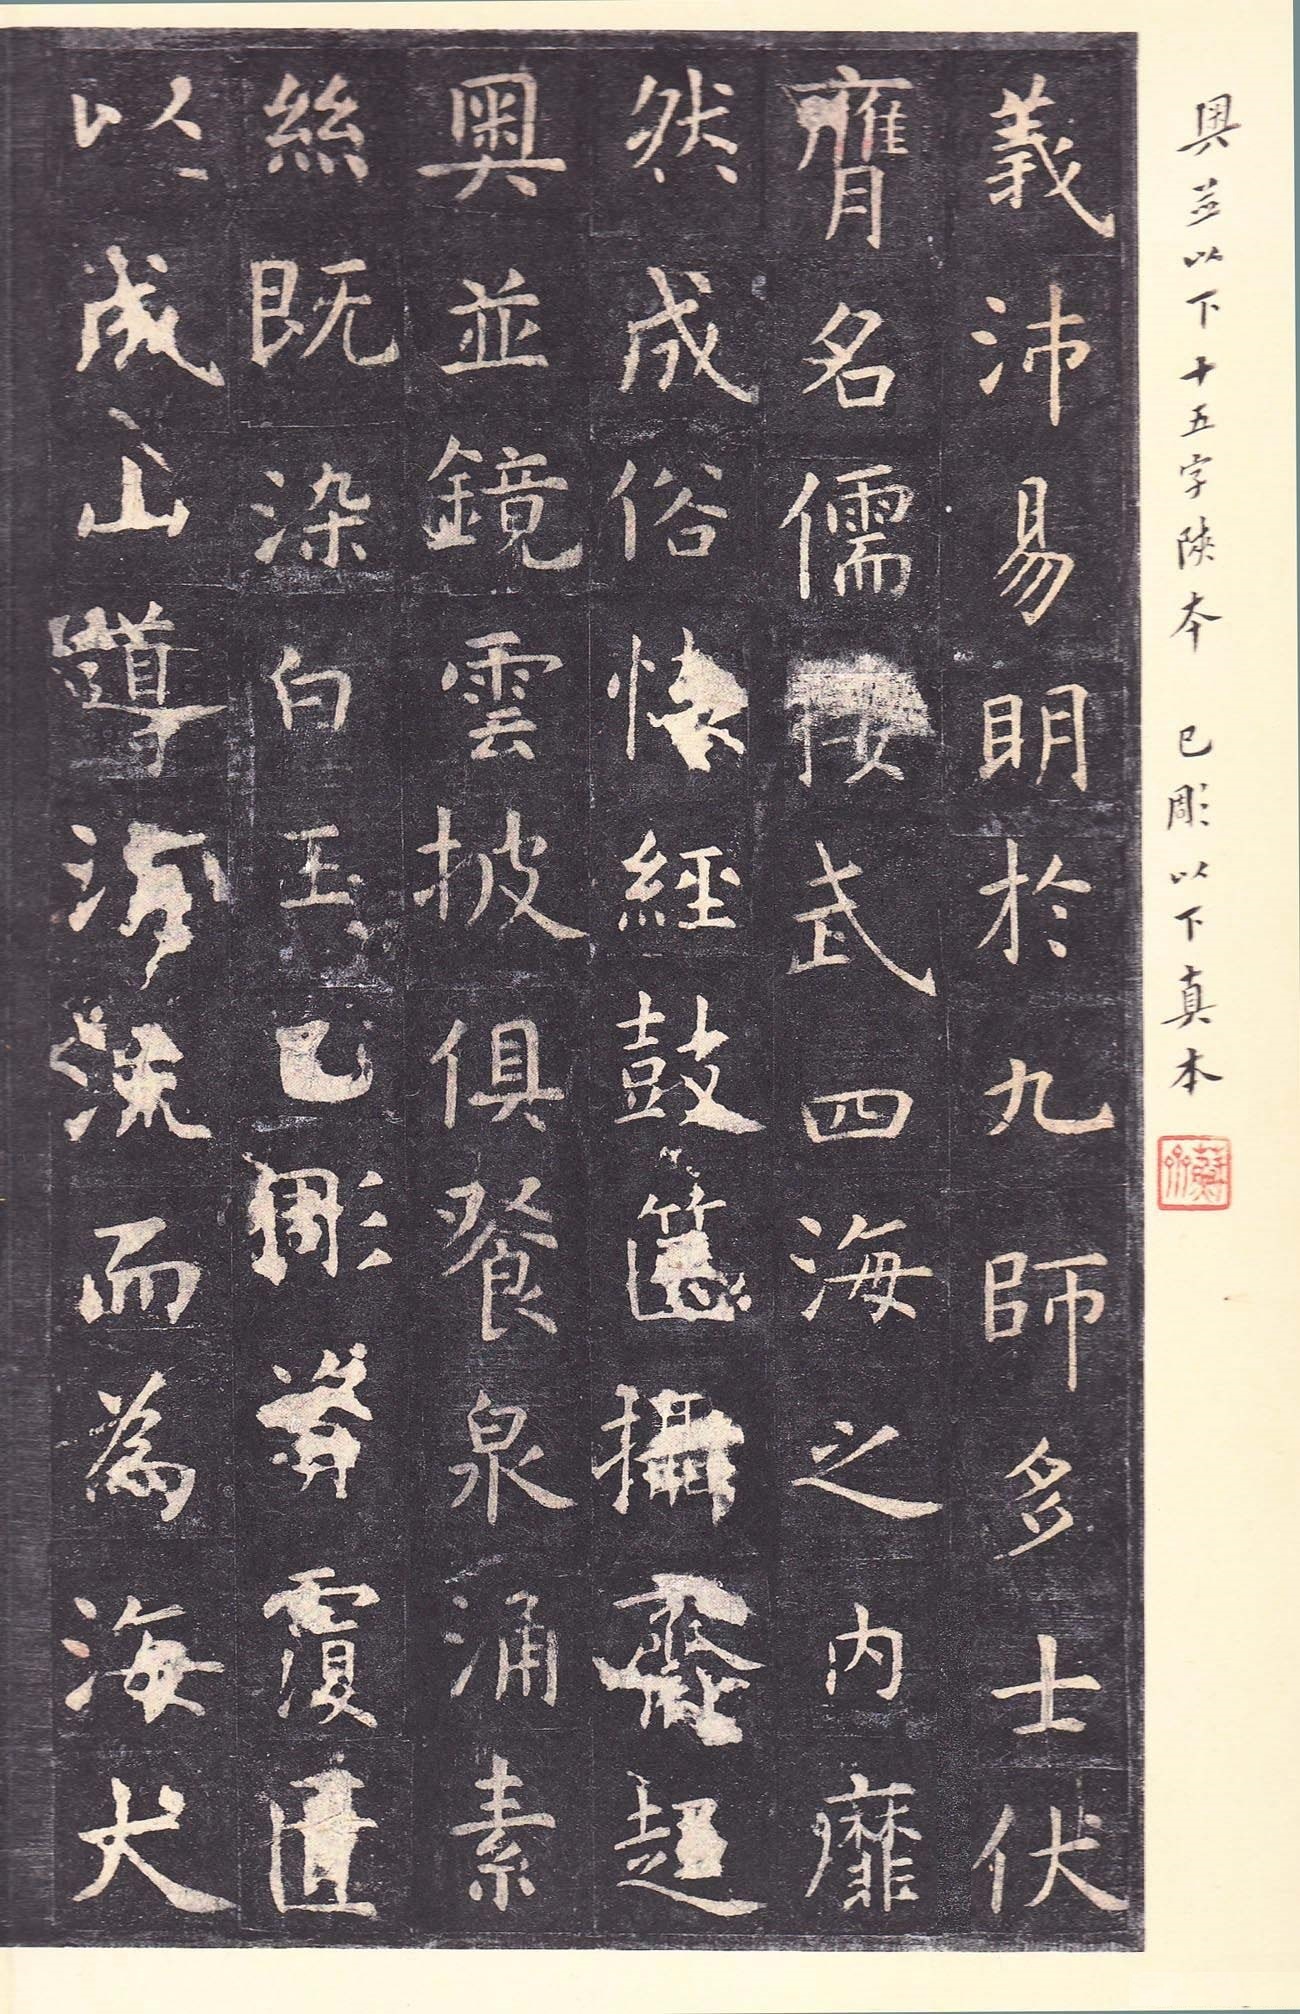 奥並以下十五字陝本 已彫以下真本
義沛易明於九師多士伏
膺名儒接武四海之内靡
然成俗懷經鼓篋攝齊趨
奥並鏡雲披俱餐泉涌素
絲既染白玉已彫資覆匱
以成山導涓流而為海大